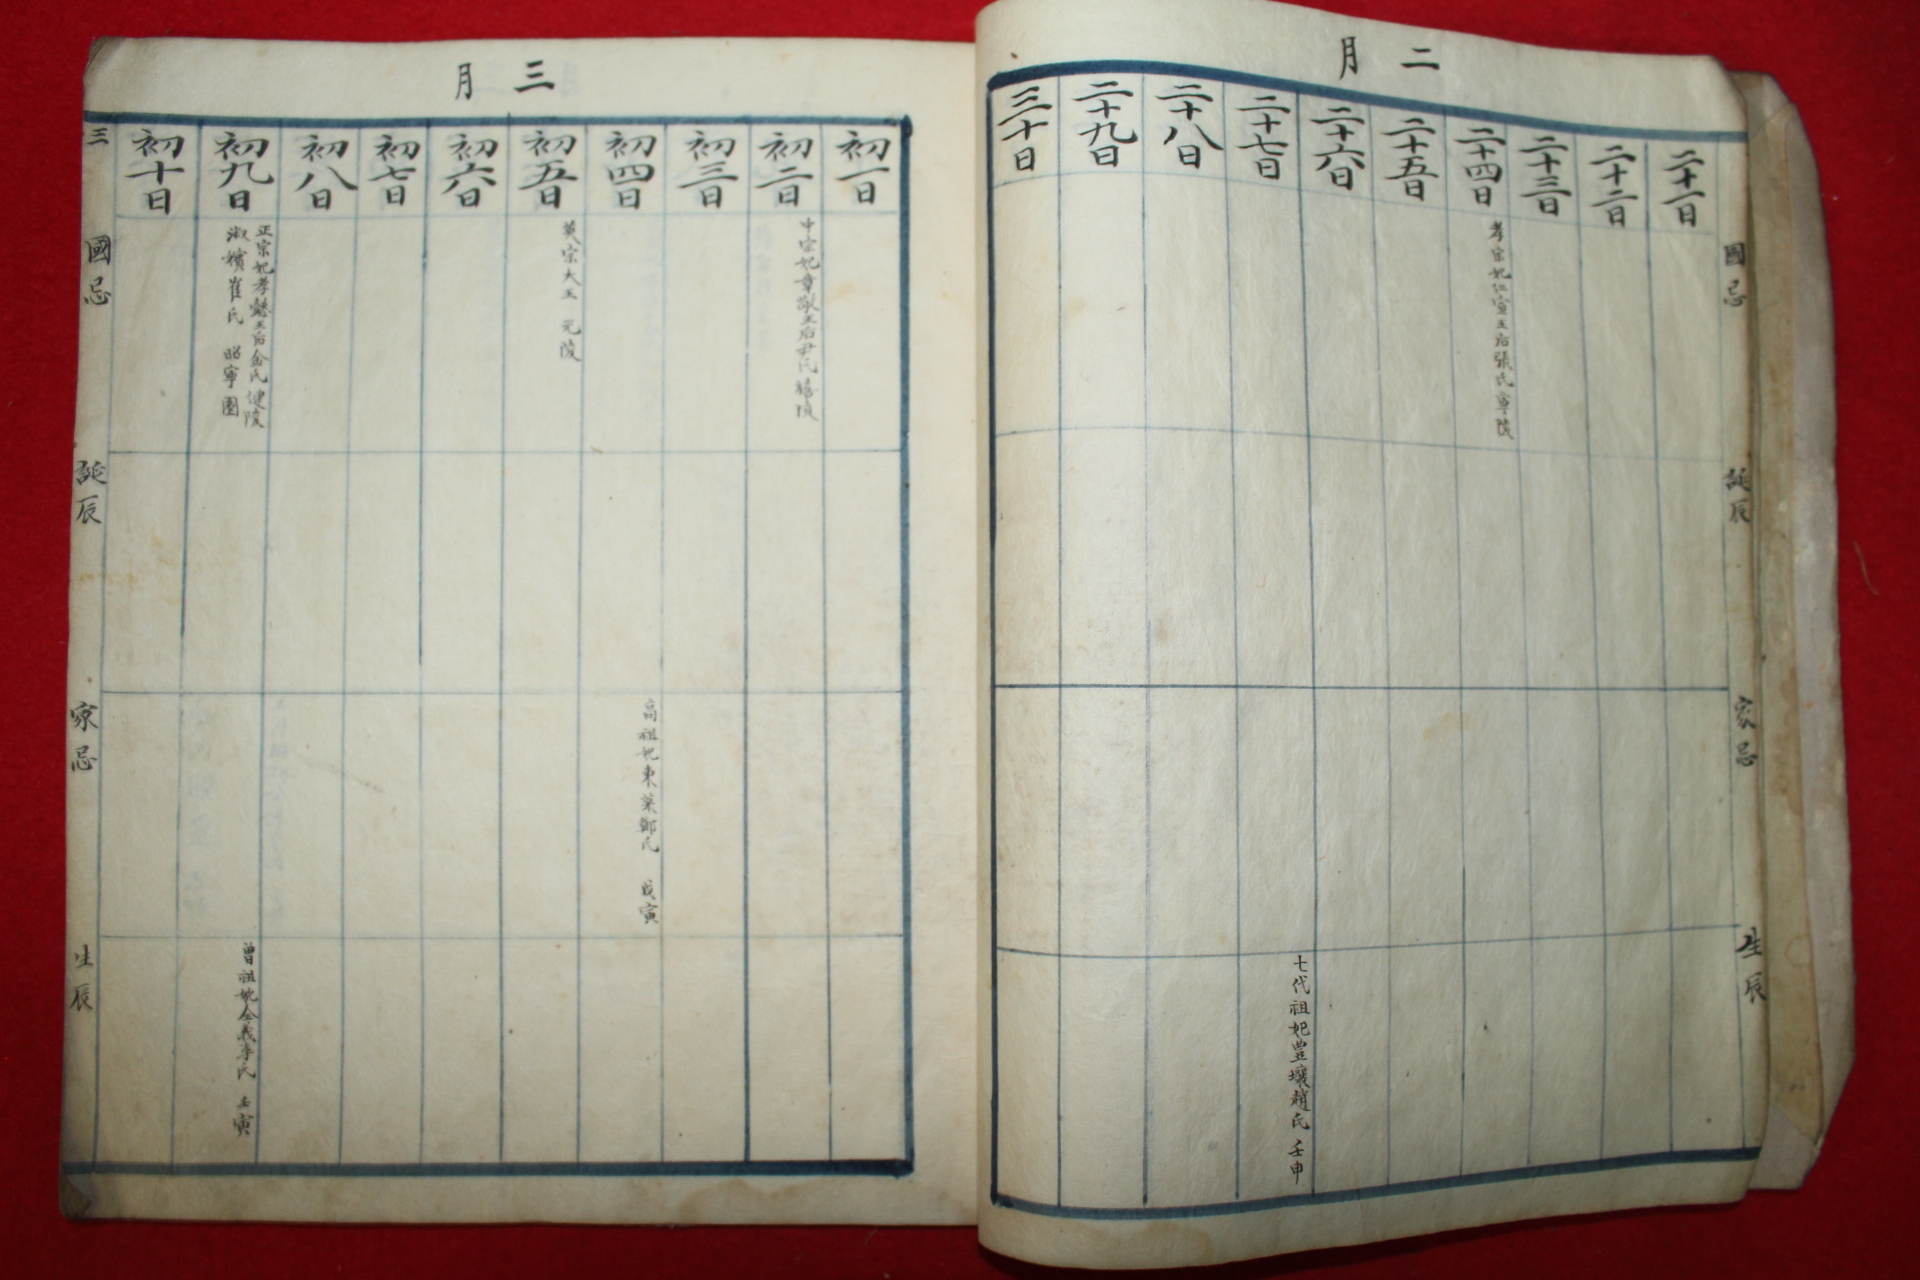 二月
二十一日
二十二日
二十三日
二十四日
二十五日
二十六日
二十七日
二十八日
二十九日
三十日
國忌
孝宗妃仁宣王后張氏寧陵
誕辰
家忌
生辰
七代祖妣豊壤趙氏 壬申
三月
初一日
初二日
初三日
初四日
初五日
初六日
初七日
初八日
初九日
初十日
三
國忌
中宗妃章敬王后尹氏 禧陵
英宗大王 元陵
正宗妃孝懿王后金氏 健陵
淑嬪崔氏 昭寧園
誕辰
家忌
高祖妣東萊鄭氏 戊寅
生辰
曾祖妣全義李氏 壬寅